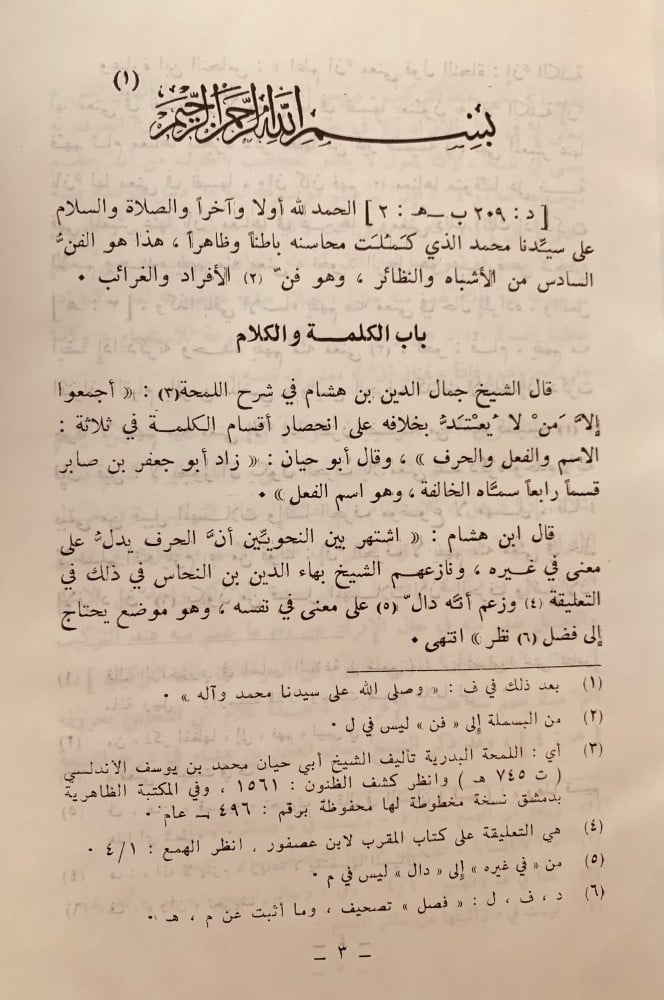 بسم الله الرحمن الرحيم (١)
[ د : ٢٠٩ ب ــ هـ : ٢ ] الحمد لله أولا وآخراً والصلاة والسلام
على سيّدنا محمد الذي كَمُلَت محاسنه باطناً وظاهراً ، هذا هو الفنُّ
السادس من الأشباه والنظائر ، وهو فنّ (٢) الأفراد والغرائب ٠
باب الكلمــة والكلام
قال الشيخ جمال الدين بن هشام في شرح اللمحة(٣) : « أجمعوا
إلاَّ مَنْ لا يُعتَدُّ بخلافه على انحصار أقسام الكلمـة في ثلاثة :
الاسم والفعل والحرف » ، وقال أبو حيان : « زاد أبو جعفر بن صابر
قسماً رابعاً سمَّاه الخالفة ، وهو اسم الفعل » ٠
قال ابن هشام : « اشتهر بين النحويِّين أنَّ الحرف يدلُّ على
معنى في غيره ، ونازعهم الشيخ بهاء الدين بن النحاس في ذلك في
التعليقة (٤) وزعم أنَّه دالّ (٥) على معنى في نفسه ، وهو موضع يحتاج
إلى فضل (٦) نظر » انتهى ٠
(١) بعد ذلك في ف : « وصلى الله على سيدنا محمد وآله » ٠
(٢) من البسملة إلى « فن » ليس في ل ٠
(٣) أي : اللمحة البدرية تأليف الشيخ أبي حيان محمد بن يوسف الاندلسي
( ت ٧٤٥ هـ ) وانظر كشف الظنون : ١٥٦١ ، وفي المكتبة الظاهرية
بدمشق نسخة مخطوطة لها محفوظة برقم : ٤٩٦ ــ عام ٠
(٤) هي التعليقة على كتاب المقرب لابن عصفور ، انظر الهمع : ٤/١ ٠
(٥) من « في غيره » إلى « دال » ليس في م ٠
(٦) د ، ف ، ل : « فصل » تصحيف ، وما أثبت عن م ، هـ ٠
ــ ٣ ــ